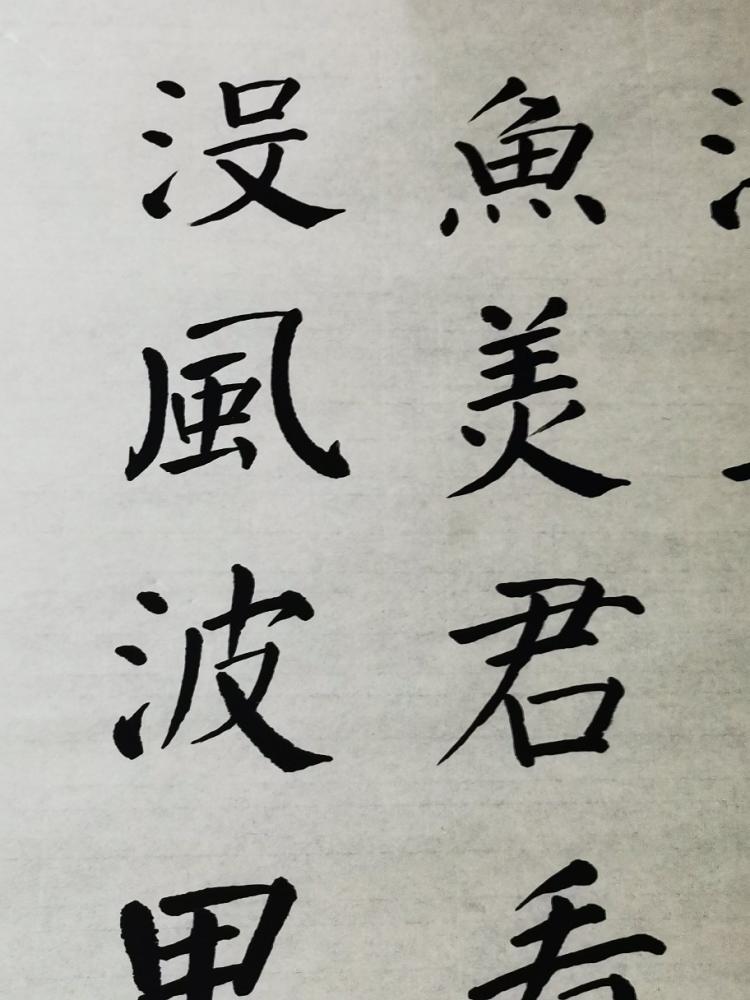 魚美君看
没風波里